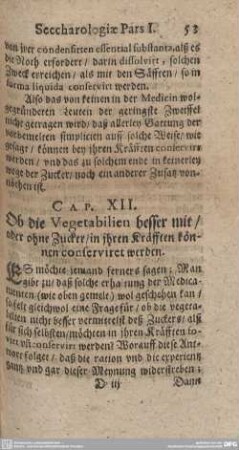 Seccharologiæ Pars I. 53
von jrer condensirten essential substantz, alß es
die Noth erfordert / darin dissolvirt, solchen
Zweck erreichen / als mit den Säfften / so in
forma liquida conservirt werden.
Also das von keinen in der Medicin wol-
gegründeten Leuten der geringste Zweiffel
nicht getragen wird / daß allerley Gattung der
vorbemelten simplicien auff solche Weise / wie
gesagt / können bey jhren Kräfften conservirt
werden / vnd das zu solchem ende in keinerley
wege der Zucker / noch ein anderer Zusatz von-
nöthen ist.
CAP. XII.
Ob die Vegetabilien besser mit /
oder ohne Zucker / in jhren Kräfften kön-
nen conserviret werden.
ES möchte jemand ferners sagen; Man
gibe zu / daß solche erhaltung der Medica-
menten (wie oben gemelt) wol geschehen kan /
so felt gleichwol eine Frage für / ob die vegeta-
bilien nicht besser vermittelst deß Zuckers / alß
für sich selbsten / möchten in jhren Kräfften
conservirt werden? Worauff diese Ant-
wort folget / daß die ration vnd die experientz
gantz vnd gar dieser Meynung widerstreben;
D iij Dann